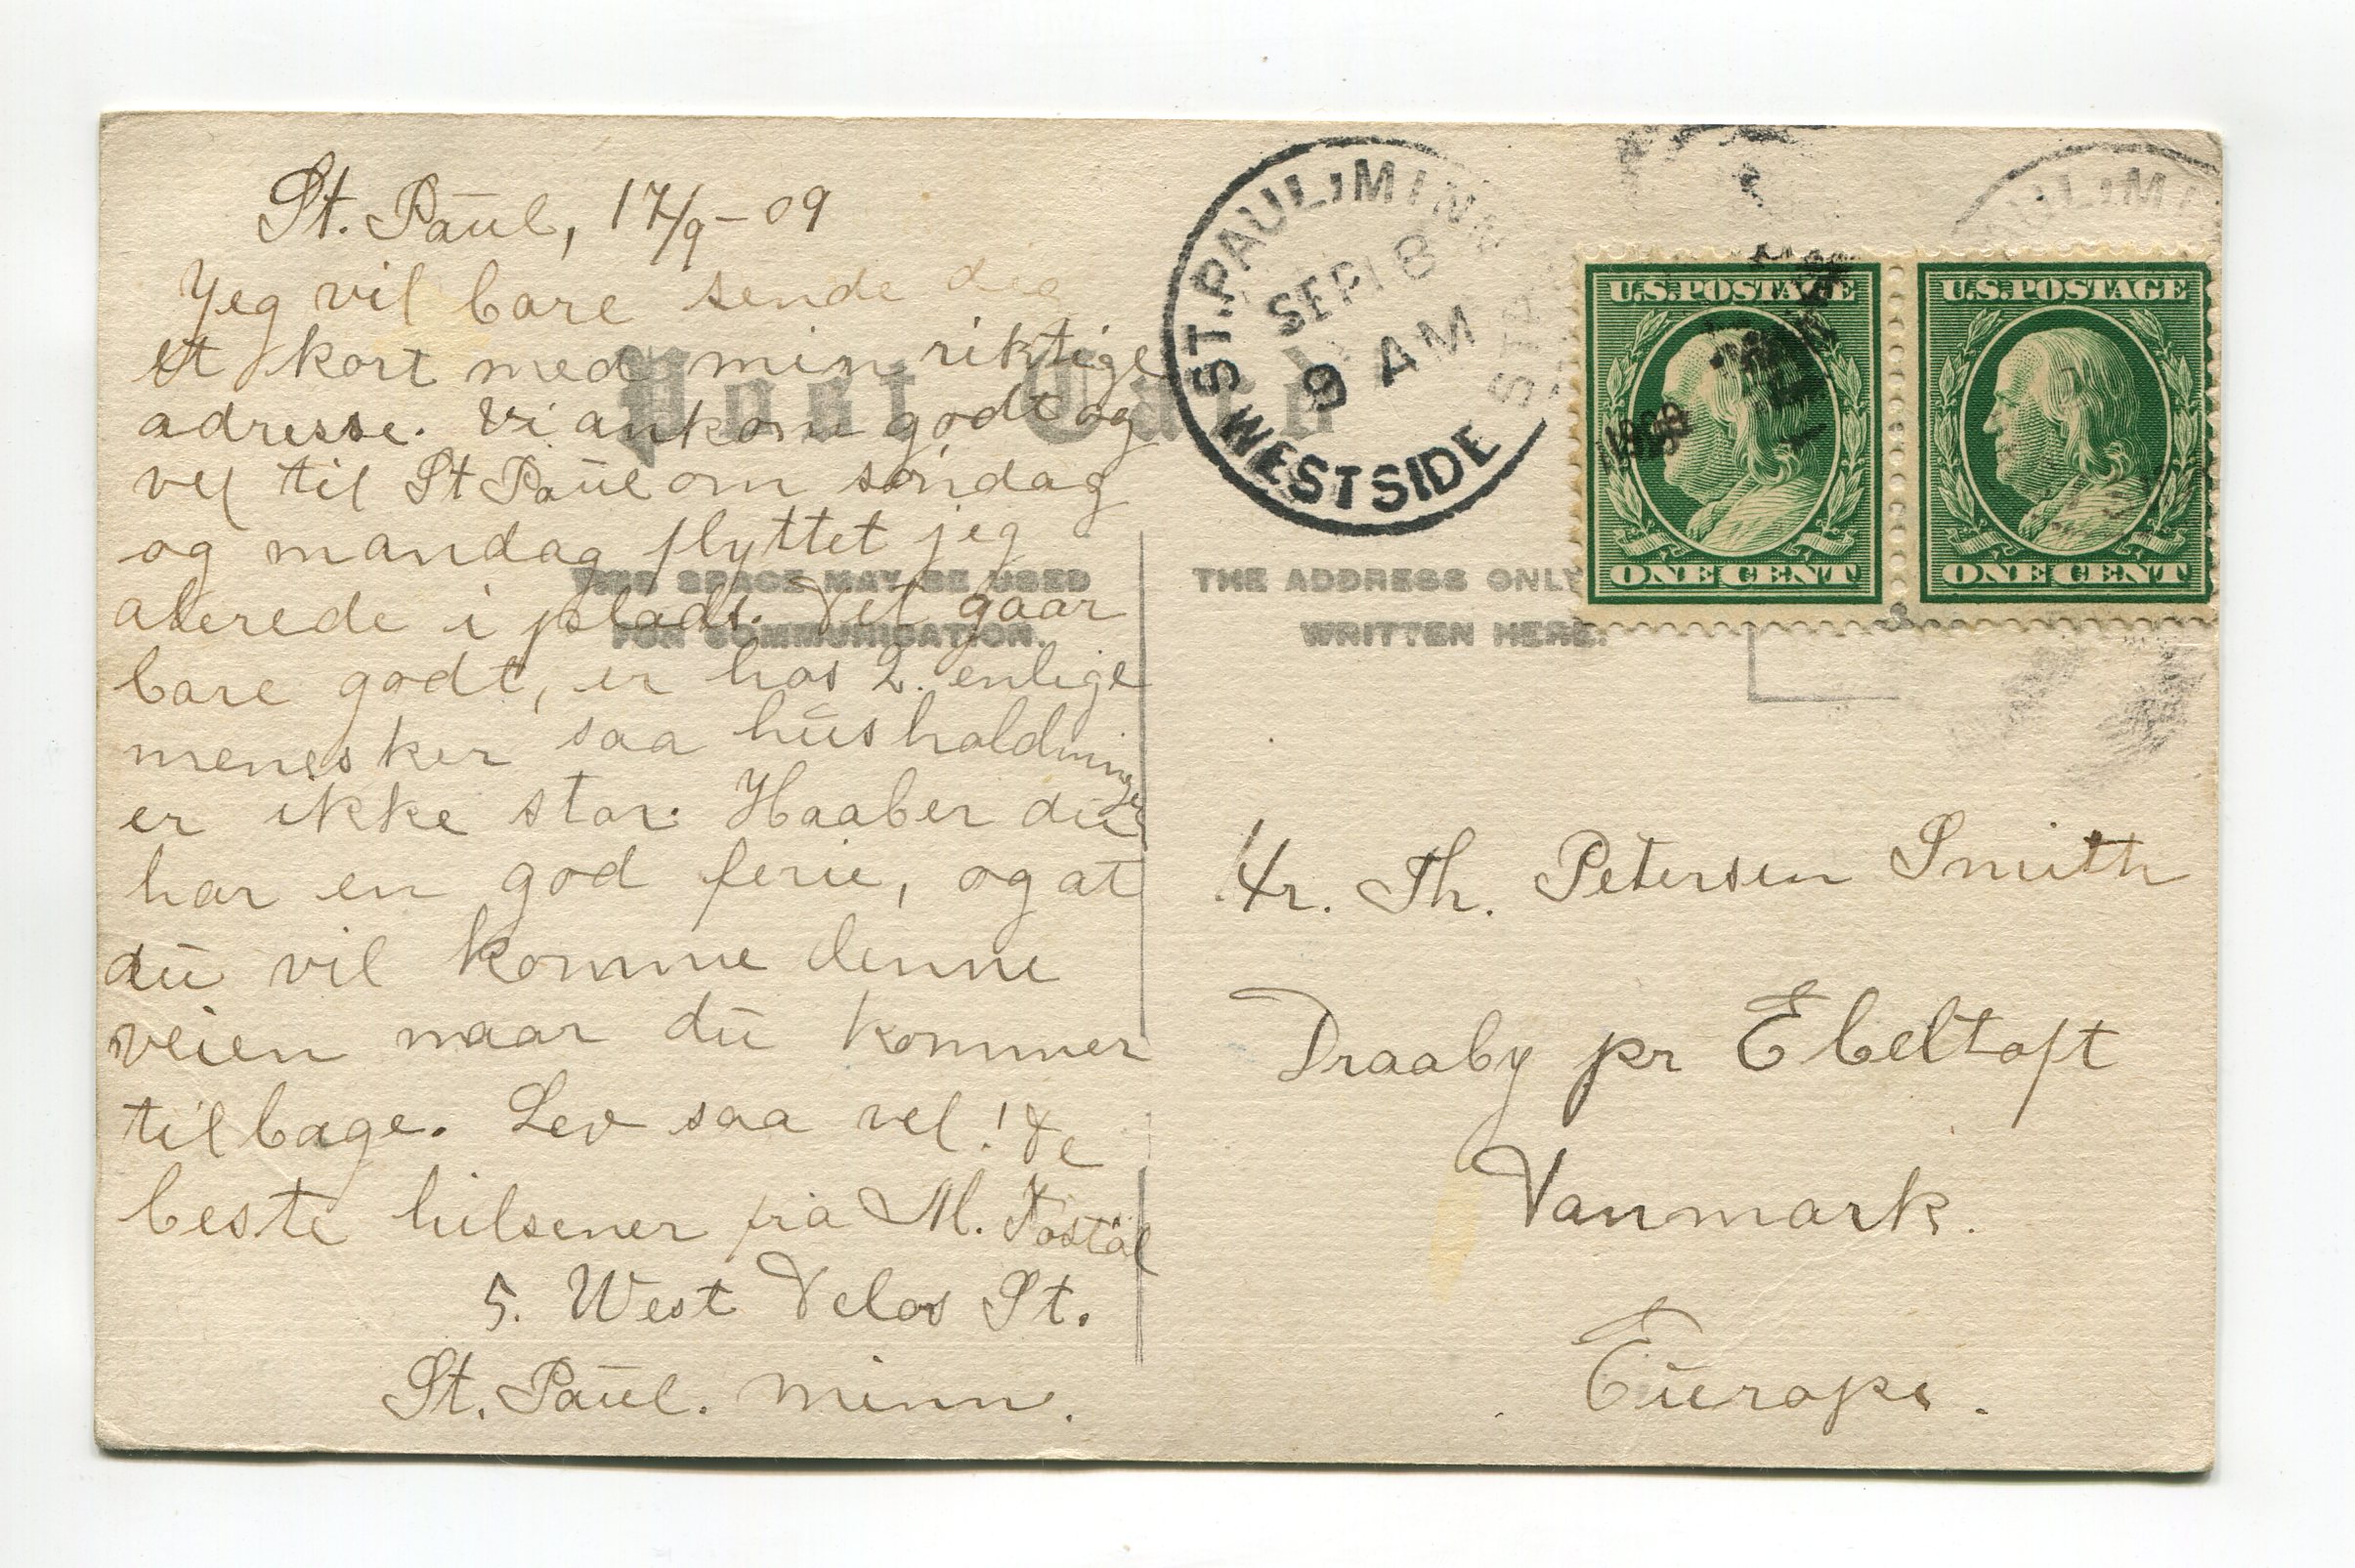 St. Paul, 17/9-09
Yeg vil bare sende deg
et kort med min riktige
adresse. Vi ankom godt og
vel til St Paul om søndag
og mandag flyttet jeg
alerede i plads. Det gaar
bare godt, er hos 2. enlige
menesker saa husholdningen
er ikke stor. Haaber du
har en god ferie, og at
du vil komme denne
veien naar du kommer
tilbage. Lev saa vel! De
beste hilsener fra M.
5. West Delos St.
St. Paul. Minn.
Post Card
THIS SPACE MAY BE USED
FOR COMMUNICATION.
THE ADDRESS ONLY
WRITTEN HERE.
ST. PAUL, MINN
SEP 18
9 AM
STA
WEST SIDE
1909
PAUL, MI
U.S. POSTAGE
ONE CENT
U.S. POSTAGE
ONE CENT
Hr. Th. Petersen Smith
Draaby pr Ebeltoft
Danmark.
Europe.